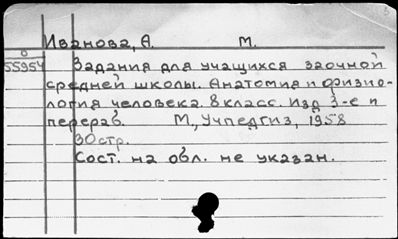 Иванова, А. М.
55954 Задания для учащихся заочной
средней школы. Анатомия и физио-
логия человека. 8 класс. Изд 3-е и
перераб. М., Учпедгиз, 1958
30 стр.
Сост. на обл. не указан.